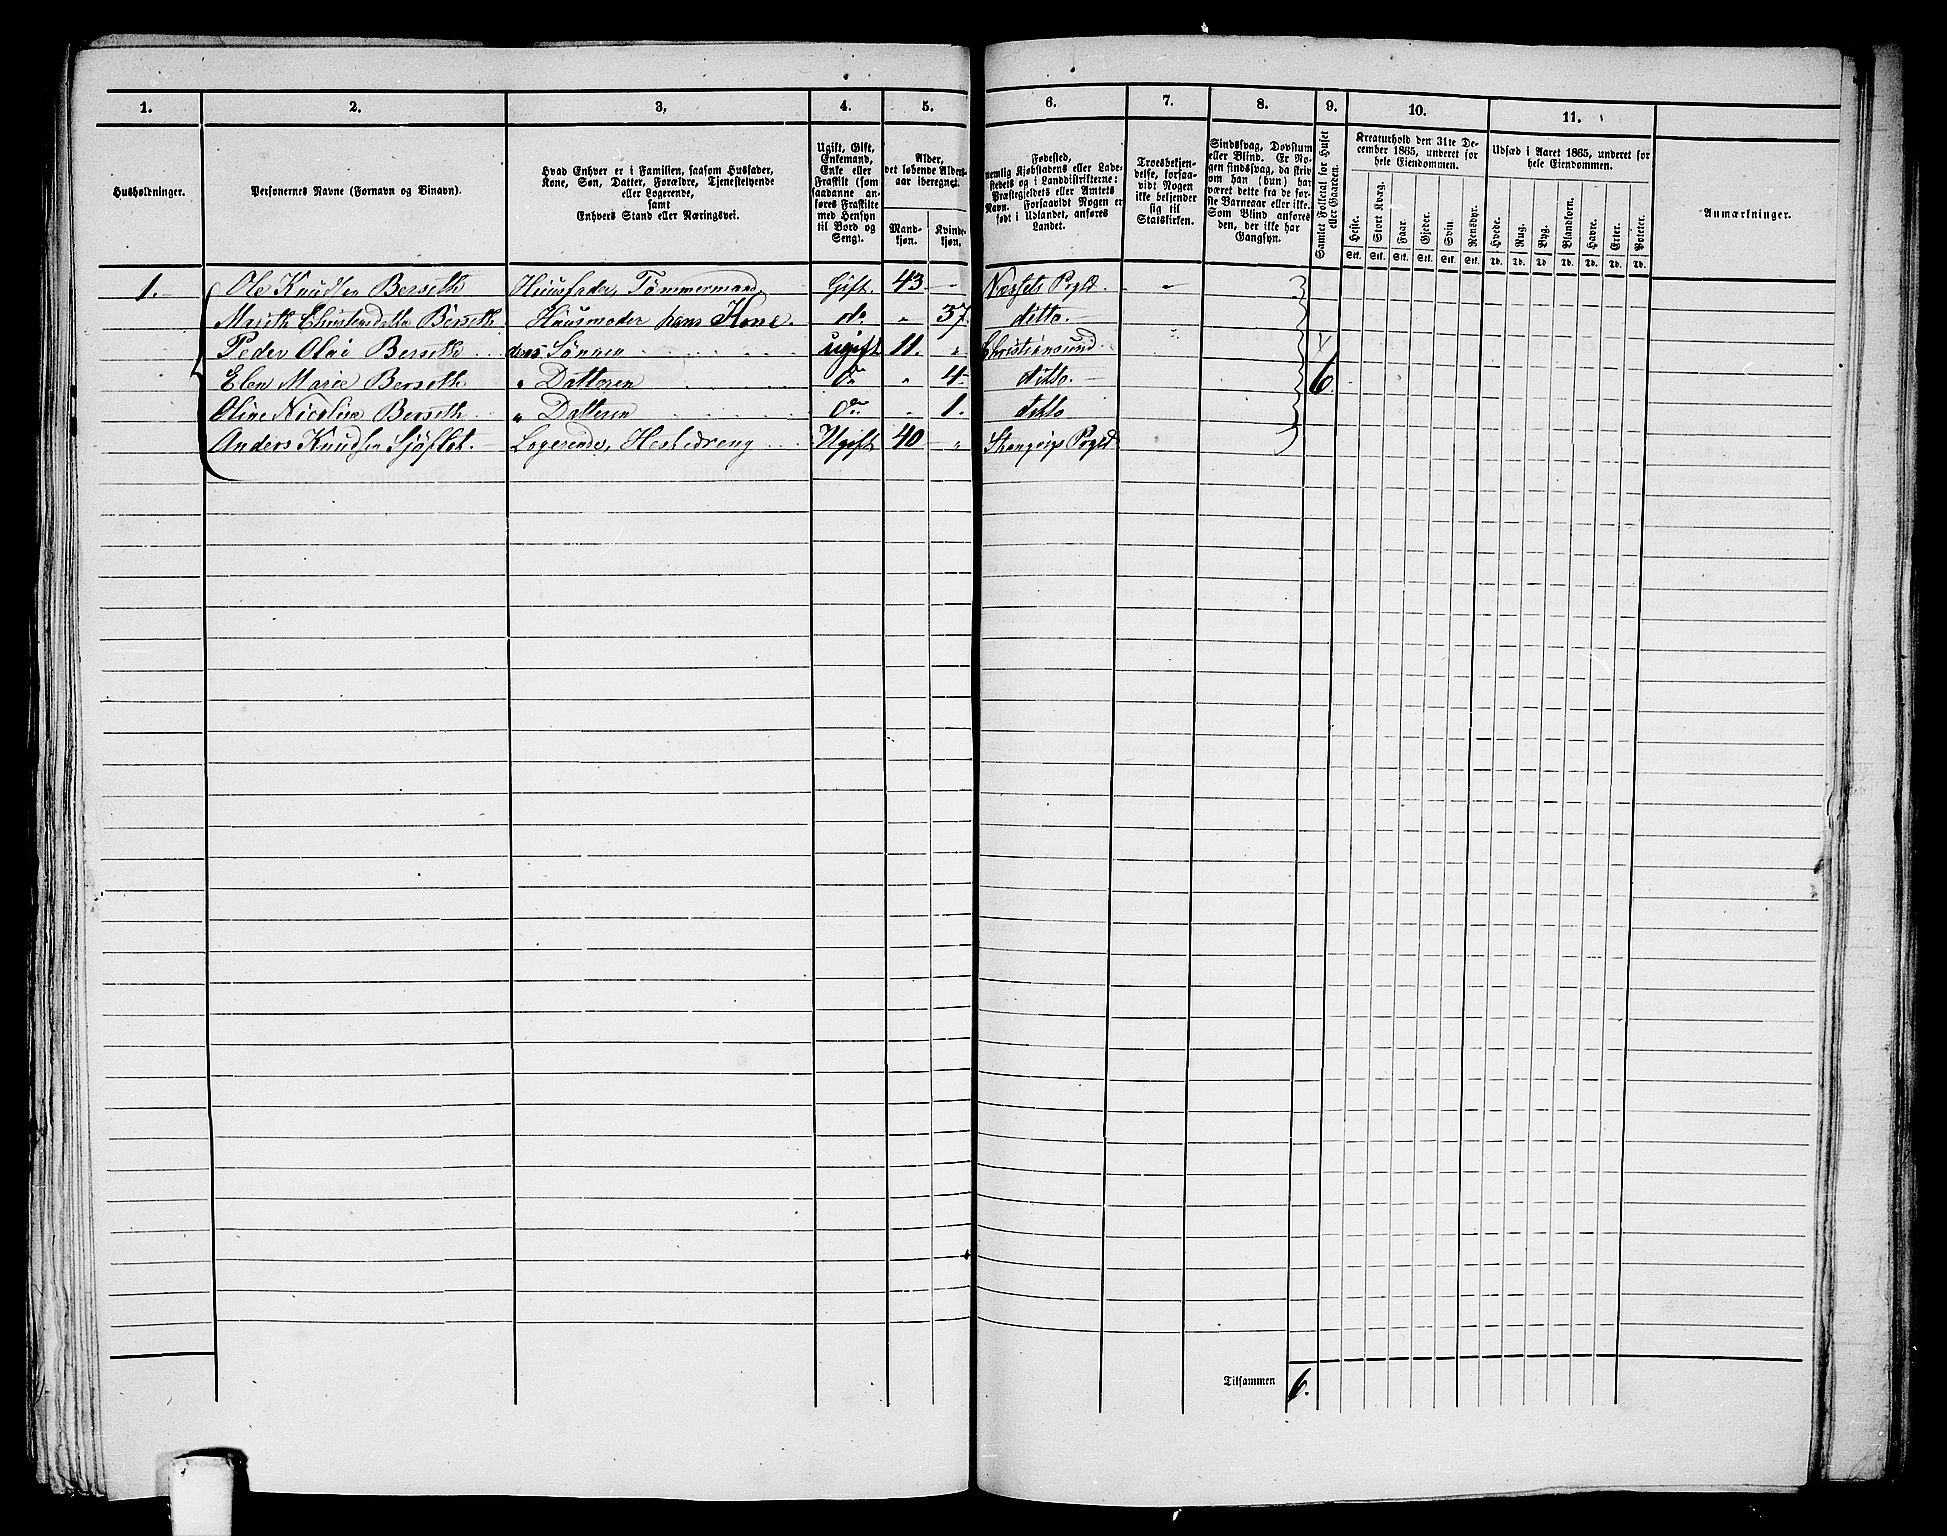 1. 2. 3, 4. 5. 6. 7. 8. 9. 10. 11.
Husholdninger.
Personernes Navne (Fornavn og Binavn).
Hvad Enhver er i Familien, saasom Husfader,
Kone, Søn, Datter, Forældre, Tjenestetyende
eller Logerende,
samt
Enhvers Stand eller Næringsvei.
Ugift, Gift,
Enkemand,
Enke eller
Fraskilt (som
saadanne an-
føres Fraskilte
med Hensyn
til Bord og
Seng).
Alder,
det løbende Alders-
aar iberegnet.
Mand-
kjøn.
Kvinde-
kjøn.
Fødested,
nemlig Kjøbstadens eller Lade-
stedets og i Landdistrikterne:
Præstegjeldets eller Amtets
Navn. Forsaavidt Nogen er
født i Udlandet, anføres
Landet.
Troesbekjen-
delse, forsaa-
vidt Nogen
ikke bekjender
sig til
Statskirken.
Sindssvag, Døvstum
eller Blind. Er No-
gen sindssvag, da skriv
om han (hun) har
været dette fra de før-
ste Barneaar eller ikke.
Som Blind anføres
den, der ikke har
Gangsyn.
Samlet Folketal for Huset
eller Gaarden.
Kreaturhold den 31te De-
cember 1865, underet for
hele Eiendommen.
Heste. Stort Kvæg. Faar. Gjeder. Svin Rensdyr.
Stk. Stk. Stk. Stk. Stk. Stk.
Udsæd i Aaret 1865, underet for
hele Eiendommen.
Hvede. Rug. Byg. Blandkorn. Havre. Erter. Poteter.
Td. Td. Td. Td. Td. Td. Td.
Anmærkninger.
1. Ole Knudsen Berseth Huusfader, Tömmermand. Gift. 43 - Næssets Pgld. -
Marith Christensdatter Berseth Huusmoder hans Kone. do " 37. ditto.
Peder Olai Berseth deres Sønnen ugift 11. " Christiansund
Elen Marie Berseth " Datteren do " 4 ditto. 6.
Oline Nicoline Berseth " Datteren do " 1. ditto
Anders Knudsen Sjöflot. Logerende, Hestedreng Ugift 40 " Stangvigs Pgld
Tilsammen 6.